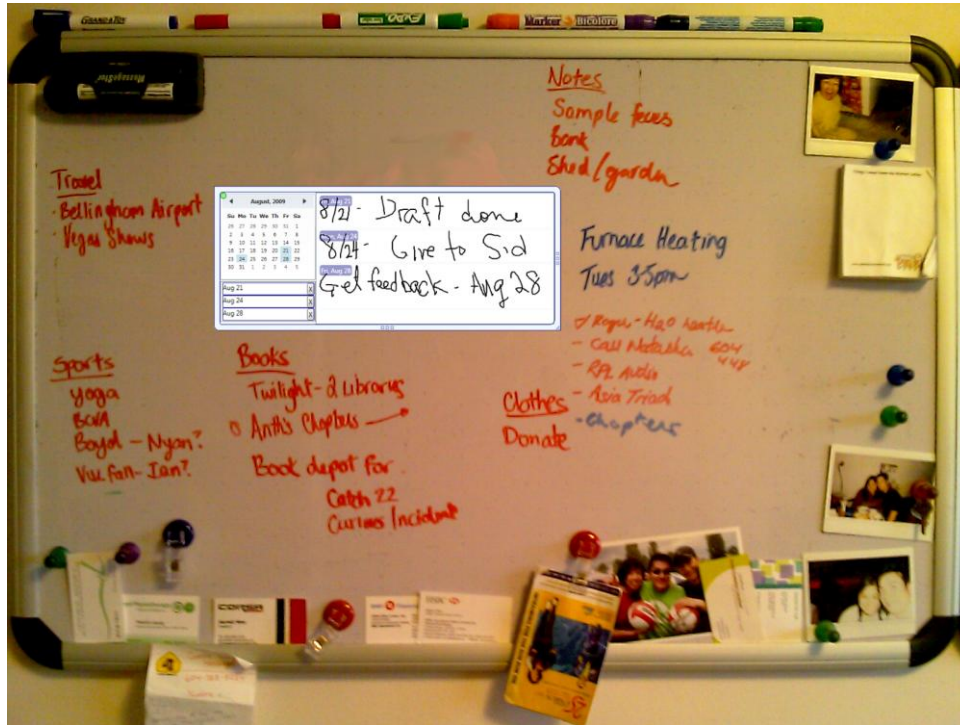 GRAND & TOY
EXPO
Marker BICOLORE
Notes
Sample feces
Bank
Shed/garden
Travel
- Bellingham Airport
- Vegas Shows
August, 2009
Su Mo Tu We Th Fr Sa
26 27 28 29 30 31 1
2 3 4 5 6 7 8
9 10 11 12 13 14 15
16 17 18 19 20 21 22
23 24 25 26 27 28 29
30 31 1 2 3 4 5
Aug 21 X
Aug 24 X
Aug 28 X
8/21 - Draft done
8/24 - Give to Sid
Get feedback - Aug 28
Furnace Heating
Tues 3-5pm
- H2O heater
- Call Natasha 604
448
- RPL Audio
- Asia Triad
- Chapters
Sports
yoga
Boyd - Nyan?
- Ian?
Books
Twilight - 2 Librarys
Anth's Chapters
Book depot for
Catch 22
Curious Incident
Clothes
Donate